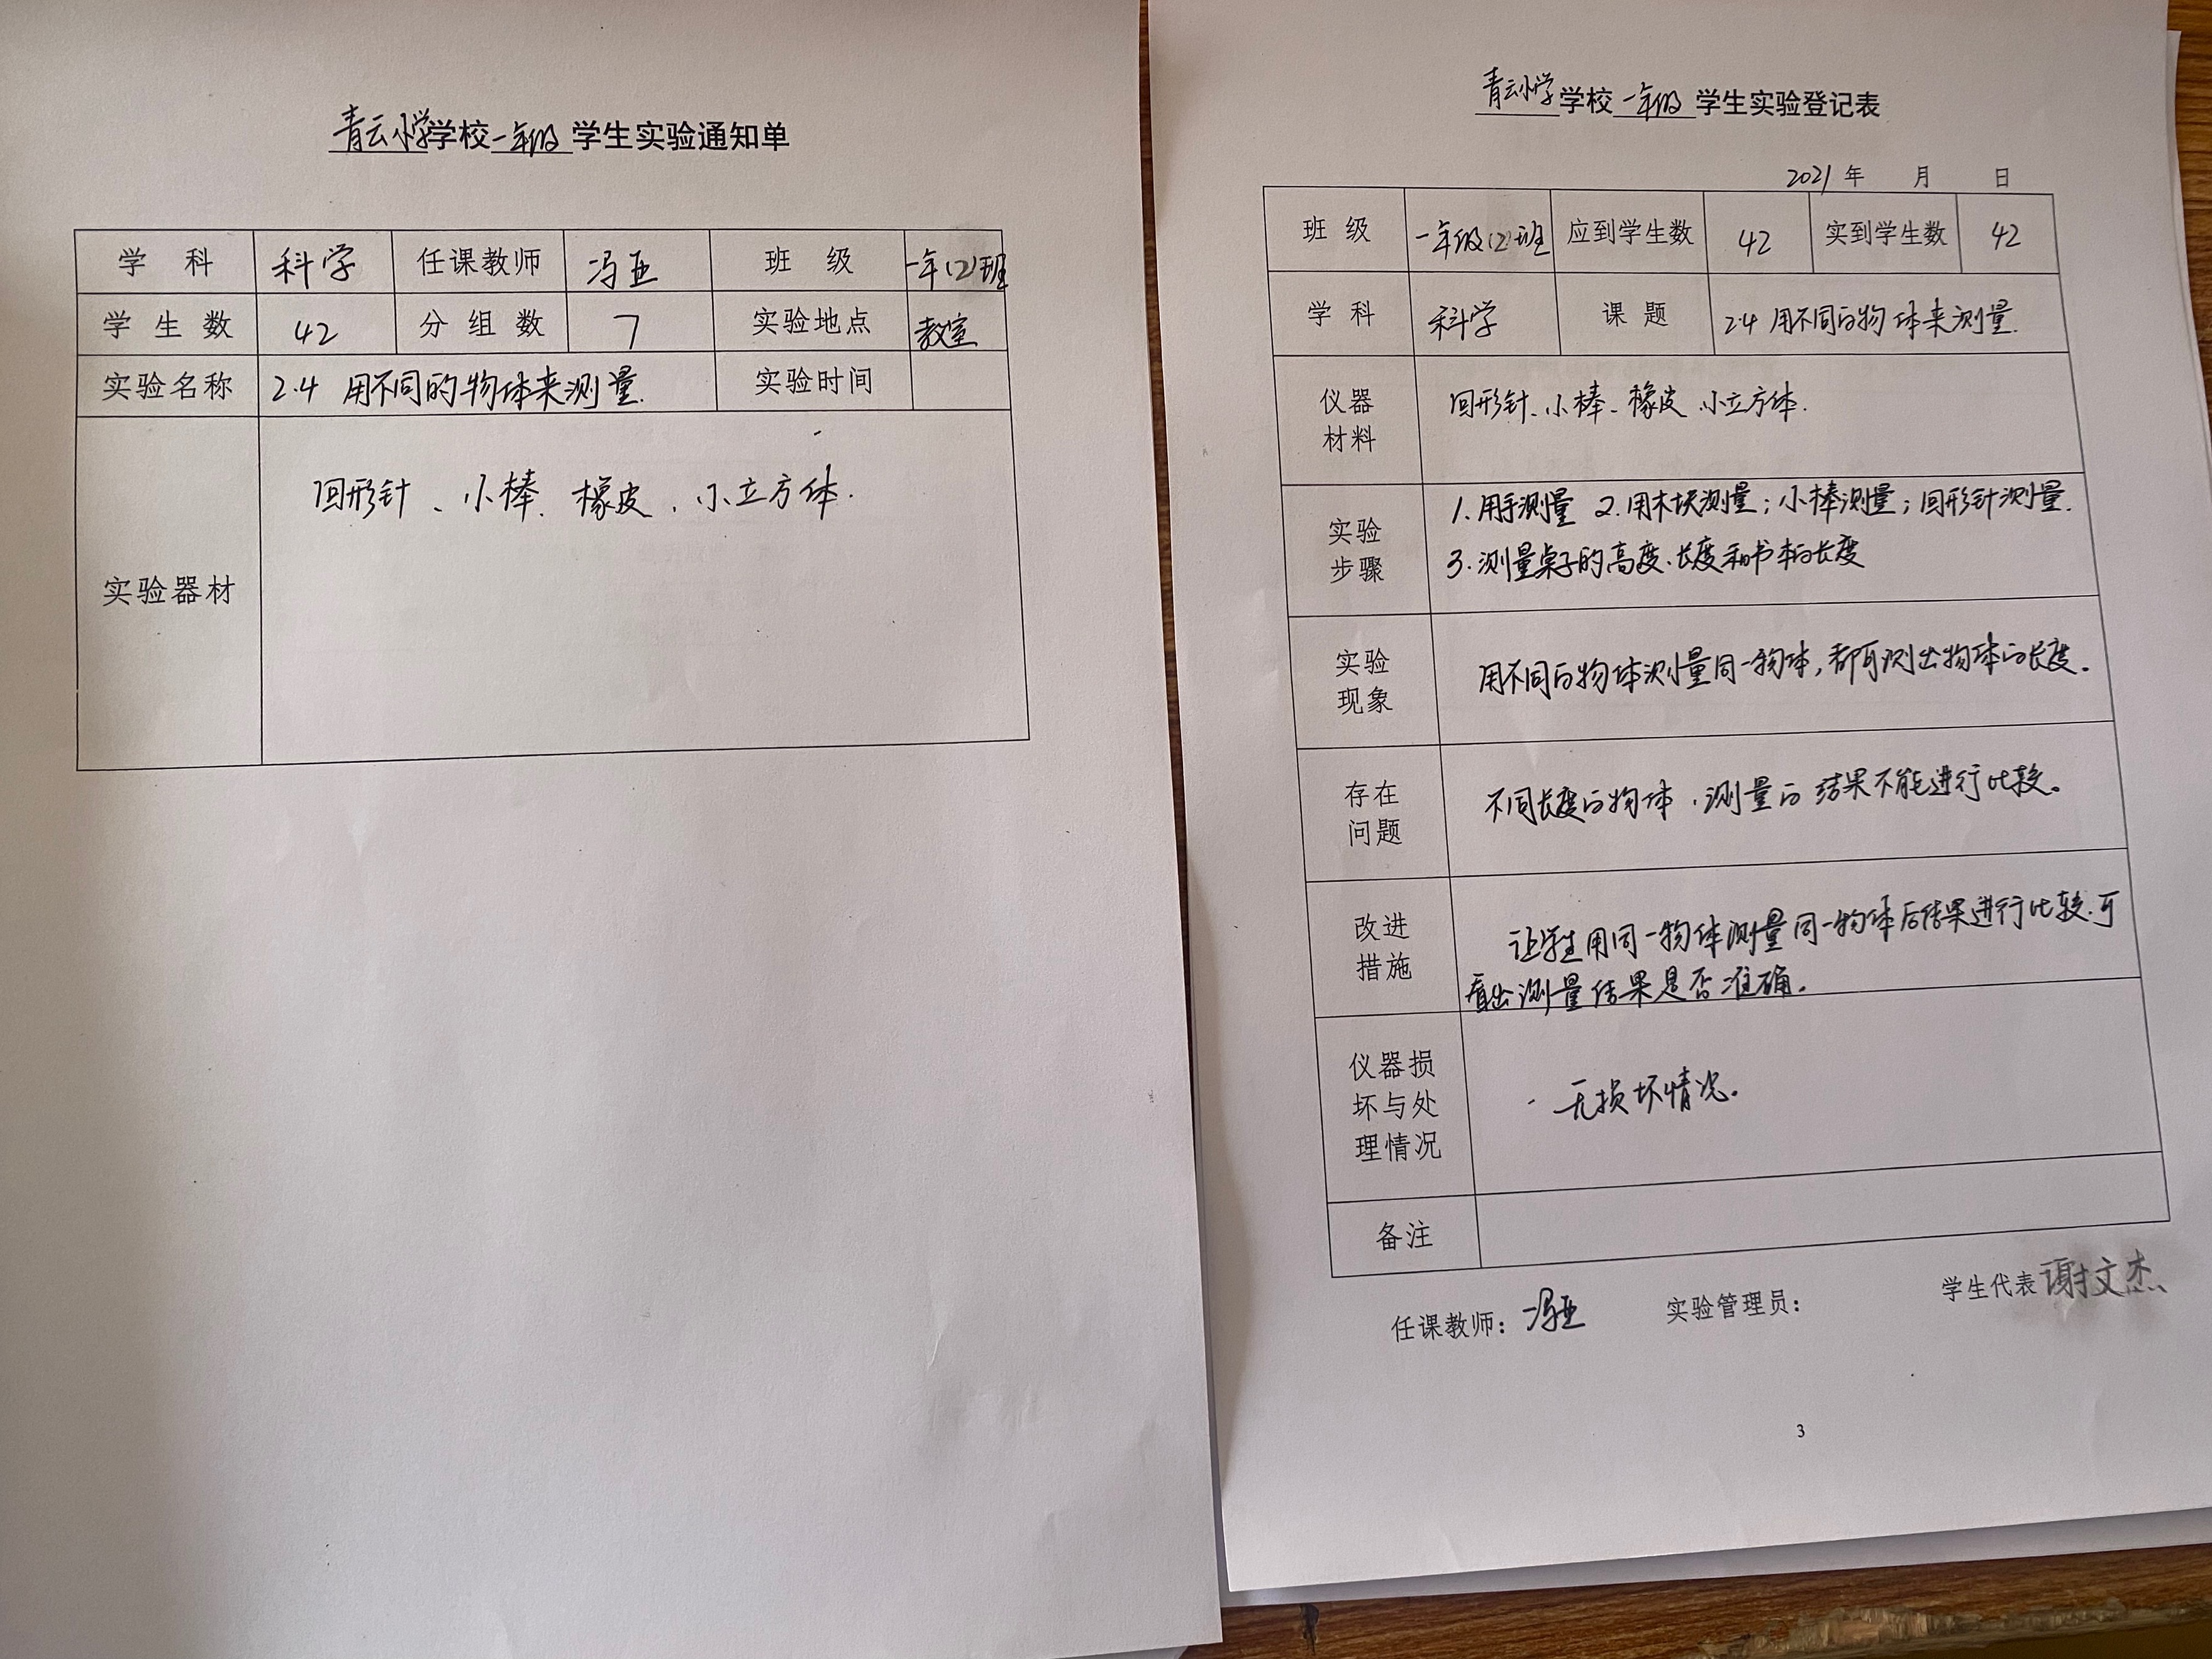 青云小学学校一年级学生实验通知单
学 科 科学 任课教师 冯亚 班 级 一年(2)班
学 生 数 42 分 组 数 7 实验地点 教室
实验名称 2.4 用不同的物体来测量. 实验时间
实验器材 回形针、小棒、橡皮、小立方体.
青云小学学校一年级学生实验登记表
2021年 月 日
班 级 一年级(2)班 应到学生数 42 实到学生数 42
学 科 科学 课 题 2.4 用不同的物体来测量.
仪器
材料
回形针、小棒、橡皮、小立方体.
实验
步骤
1.用手测量 2.用木块测量;小棒测量;回形针测量.
3.测量桌子的高度、长度和书本的长度
实验
现象
用不同的物体测量同一物体,都可测出物体的长度。
存在
问题
不同长度的物体,测量的结果不能进行比较。
改进
措施
让学生用同一物体测量同一物体后结果进行比较.可
看出测量结果是否准确。
仪器损
坏与处
理情况
无损坏情况。
备注
任课教师:冯亚 实验管理员: 学生代表谢文杰
3